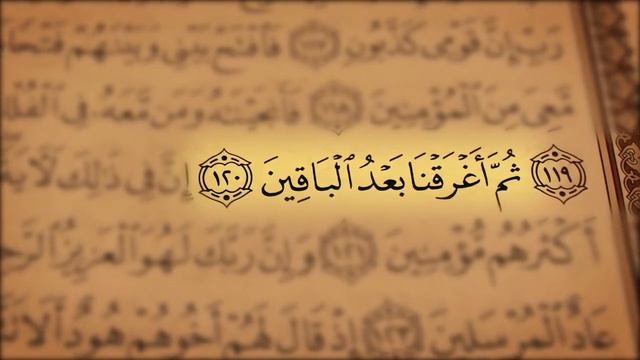 رَبِّ إِنَّ قَوْمِى كَذَّبُونِ ١١٧ فَٱفْتَحْ بَيْنِى وَبَيْنَهُمْ فَتْحًا
مَّعِىَ مِنَ ٱلْمُؤْمِنِينَ ١١٨ فَأَنجَيْنَٰهُ وَمَن مَّعَهُۥ فِى
١١٩ ثُمَّ أَغْرَقْنَا بَعْدُ ٱلْبَاقِينَ ١٢٠ إِنَّ فِى ذَٰلِكَ
أَكْثَرُهُم مُّؤْمِنِينَ ١٢١ وَإِنَّ رَبَّكَ لَهُوَ ٱلْعَزِيزُ
عَادٌ ٱلْمُرْسَلِينَ ١٢٣ إِذْ قَالَ لَهُمْ أَخُوهُمْ هُودٌ أَلَا